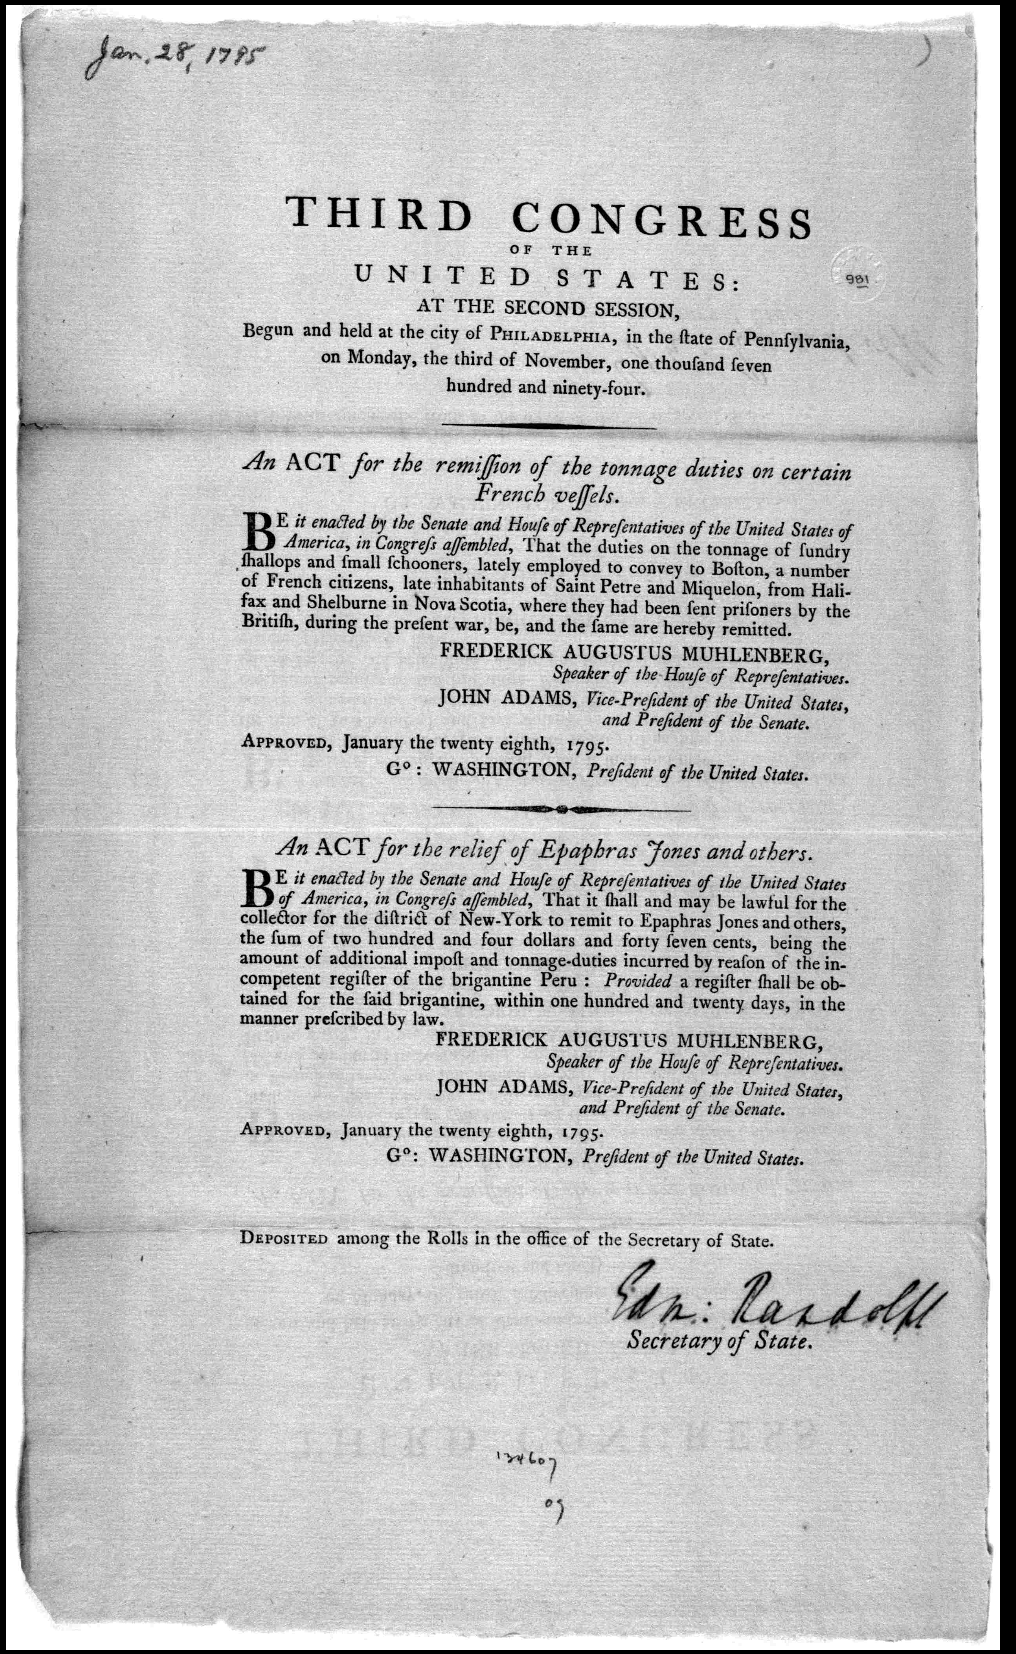 Jan. 28, 1795
THIRD CONGRESS
OF THE
UNITED STATES:
981
AT THE SECOND SESSION,
Begun and held at the city of PHILADELPHIA, in the ſtate of Pennſylvania,
on Monday, the third of November, one thouſand ſeven
hundred and ninety-four.
An ACT for the remiſſion of the tonnage duties on certain
French veſſels.
BE it enacted by the Senate and Houſe of Repreſentatives of the United States of
America, in Congreſs aſſembled, That the duties on the tonnage of ſundry
ſhallops and ſmall ſchooners, lately employed to convey to Boſton, a number
of French citizens, late inhabitants of Saint Petre and Miquelon, from Hali-
fax and Shelburne in Nova Scotia, where they had been ſent priſoners by the
Britiſh, during the preſent war, be, and the ſame are hereby remitted.
FREDERICK AUGUSTUS MUHLENBERG,
Speaker of the Houſe of Repreſentatives.
JOHN ADAMS, Vice-Preſident of the United States,
and Preſident of the Senate.
APPROVED, January the twenty eighth, 1795.
Go: WASHINGTON, Preſident of the United States.
An ACT for the relief of Epaphras Jones and others.
BE it enacted by the Senate and Houſe of Repreſentatives of the United States
of America, in Congreſs aſſembled, That it ſhall and may be lawful for the
collector for the diſtrict of New-York to remit to Epaphras Jones and others,
the ſum of two hundred and four dollars and forty ſeven cents, being the
amount of additional impoſt and tonnage-duties incurred by reaſon of the in-
competent regiſter of the brigantine Peru : Provided a regiſter ſhall be ob-
tained for the ſaid brigantine, within one hundred and twenty days, in the
manner preſcribed by law.
FREDERICK AUGUSTUS MUHLENBERG,
Speaker of the Houſe of Repreſentatives.
JOHN ADAMS, Vice-Preſident of the United States,
and Preſident of the Senate.
APPROVED, January the twenty eighth, 1795.
Go: WASHINGTON, Preſident of the United States.
DEPOSITED among the Rolls in the office of the Secretary of State.
Edm: Randolph
Secretary of State.
134607
09